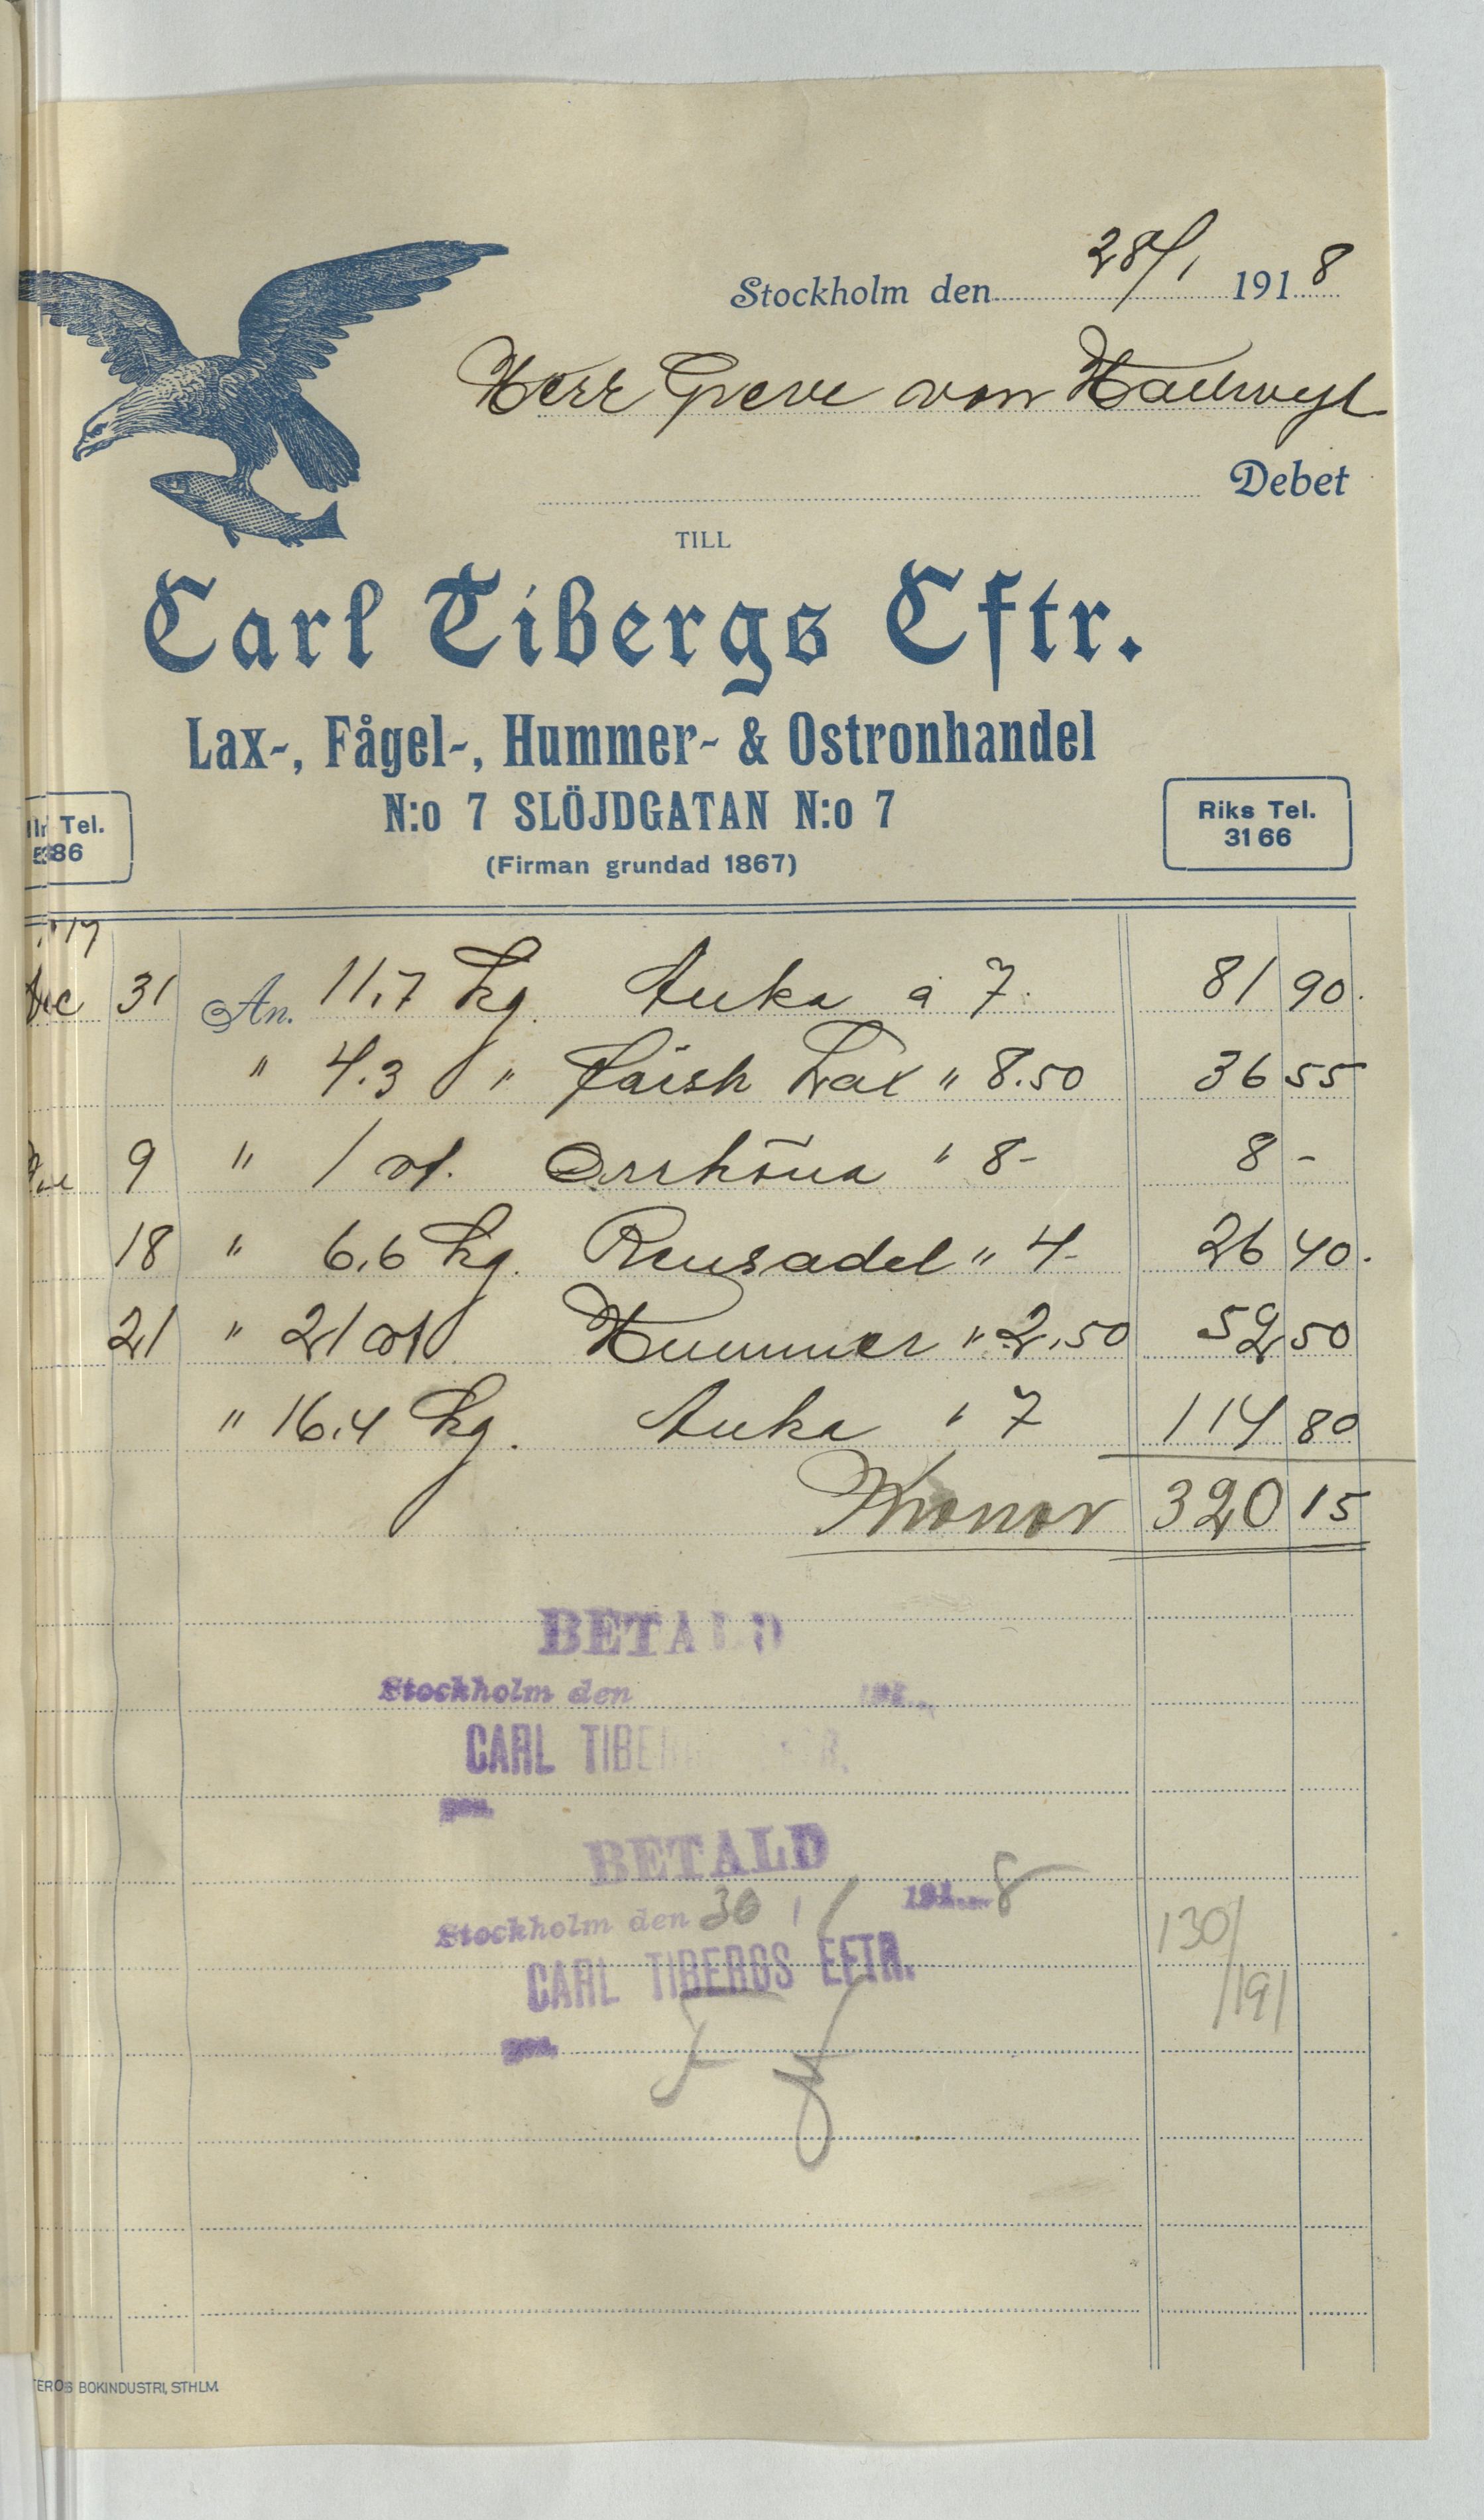 Stockholm den 28/1 1918
Herr Greve von Hallwyl
Debet
TILL
Carl Tibergs Eftr.
Lax-, Fågel-, Hummer- & Ostronhandel
N:o 7 SLÖJDGATAN N:o 7
(Firman grundad 1867)
Tel.
Riks Tel.
3166
17
Dec 31 An. 11,7 kg. Anka à 7. 81 90.
" 4.3 " färsk Lax " 8.50 36 55
9 " 1 st. Orrhöna " 8- 8 -
18 " 6,6 kg. Rensadel " 4- 26 40.
21 " 21 st Hummer " 2,50 52 50
" 16,4 kg. Anka " 7 114 80
Kronor 320 15
BETALD
Stockholm den 191
CARL TIBERGS EFTR.
BETALD
Stockholm den 30 / 1 191 8
CARL TIBERGS EFTR.
130/
/191
BOKINDUSTRI, STHLM.